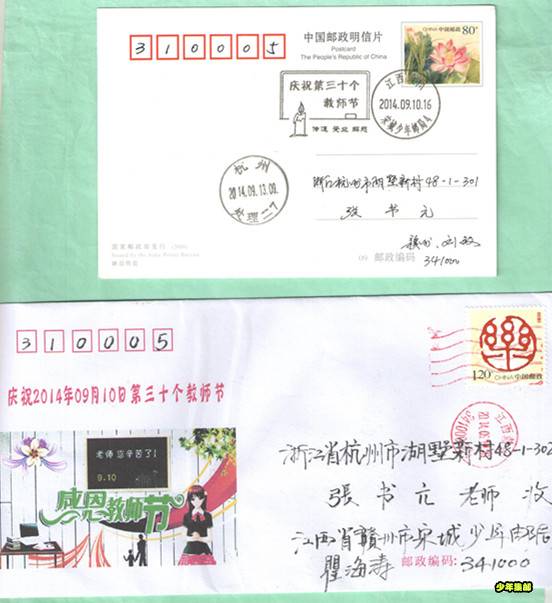 310005
中国邮政明信片
Postcard
The People's Republic of China
CHINA 中国邮政 80分
庆祝第三十个
教师节
传道 受业 解惑
江西
2014.09.10.16
宋城少年邮局A
杭州
2014.09.13.00
整理二7
浙江杭州市湖墅新村48-1-301
张书元
赣州 刘
341000
国家邮政局发行
Issued by the State Postal Bureau
09 邮政编码
310005
庆祝2014年09月10日第三十个教师节
1.20元 CHINA 中国邮政
江西
341000
老师您辛苦了!
9.10
感恩教师节
浙江省杭州市湖墅新村48-1-302
張书亢 老师 收
江西省赣州市宋城少年邮局
瞿海涛
邮政编码: 341000
少年集邮